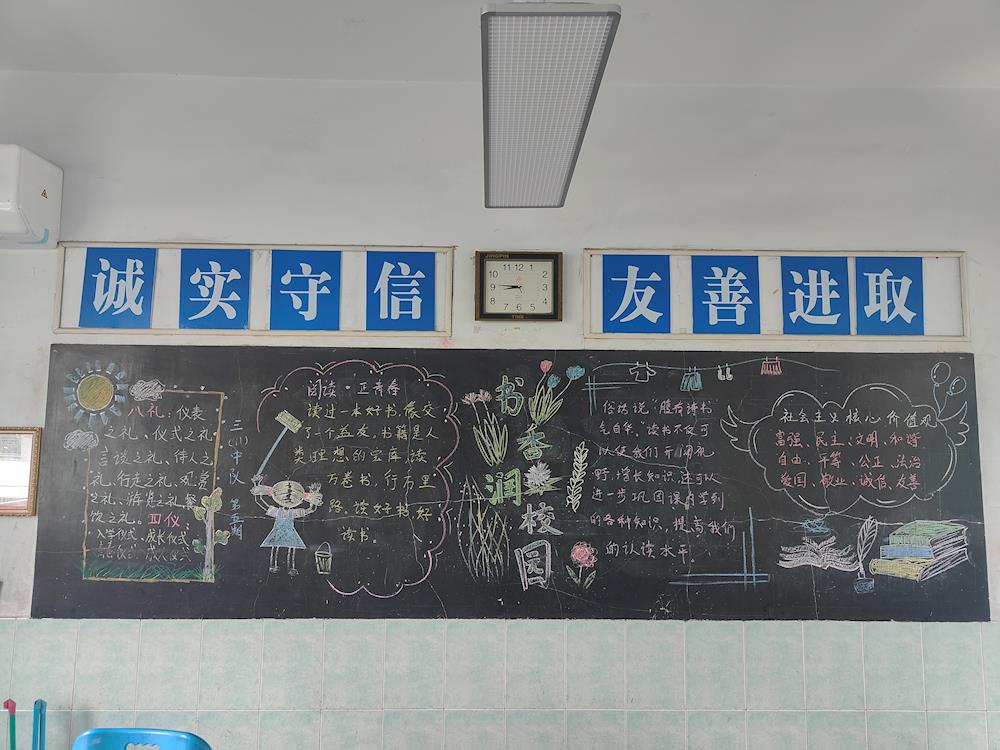 诚实守信
JINGPIN
11 12 1
10 2
9 3
8 4
7 6 5
TIME
友善进取
八礼：仪表
之礼、仪式之礼
言谈之礼、待人之
礼、行走之礼、观赏
之礼、游览之礼、餐
饮之礼。四仪：
入学仪式、成长仪式
三(1)中队 第五期
阅读·正青春
读过一本好书，像交
了一个益友。书籍是人
类理想的宝库，读
万卷书，行万里
路。读好书好
读书.
书香润校园
俗话说"腹有诗书
气自华."读书不仅可
以使我们开阔视
野，增长知识，还可以
进一步巩固课内学到
的各种知识，提高我们
的认读水平
社会主义核心价值观
富强、民主、文明、和谐
自由、平等、公正、法治
爱国、敬业、诚信、友善